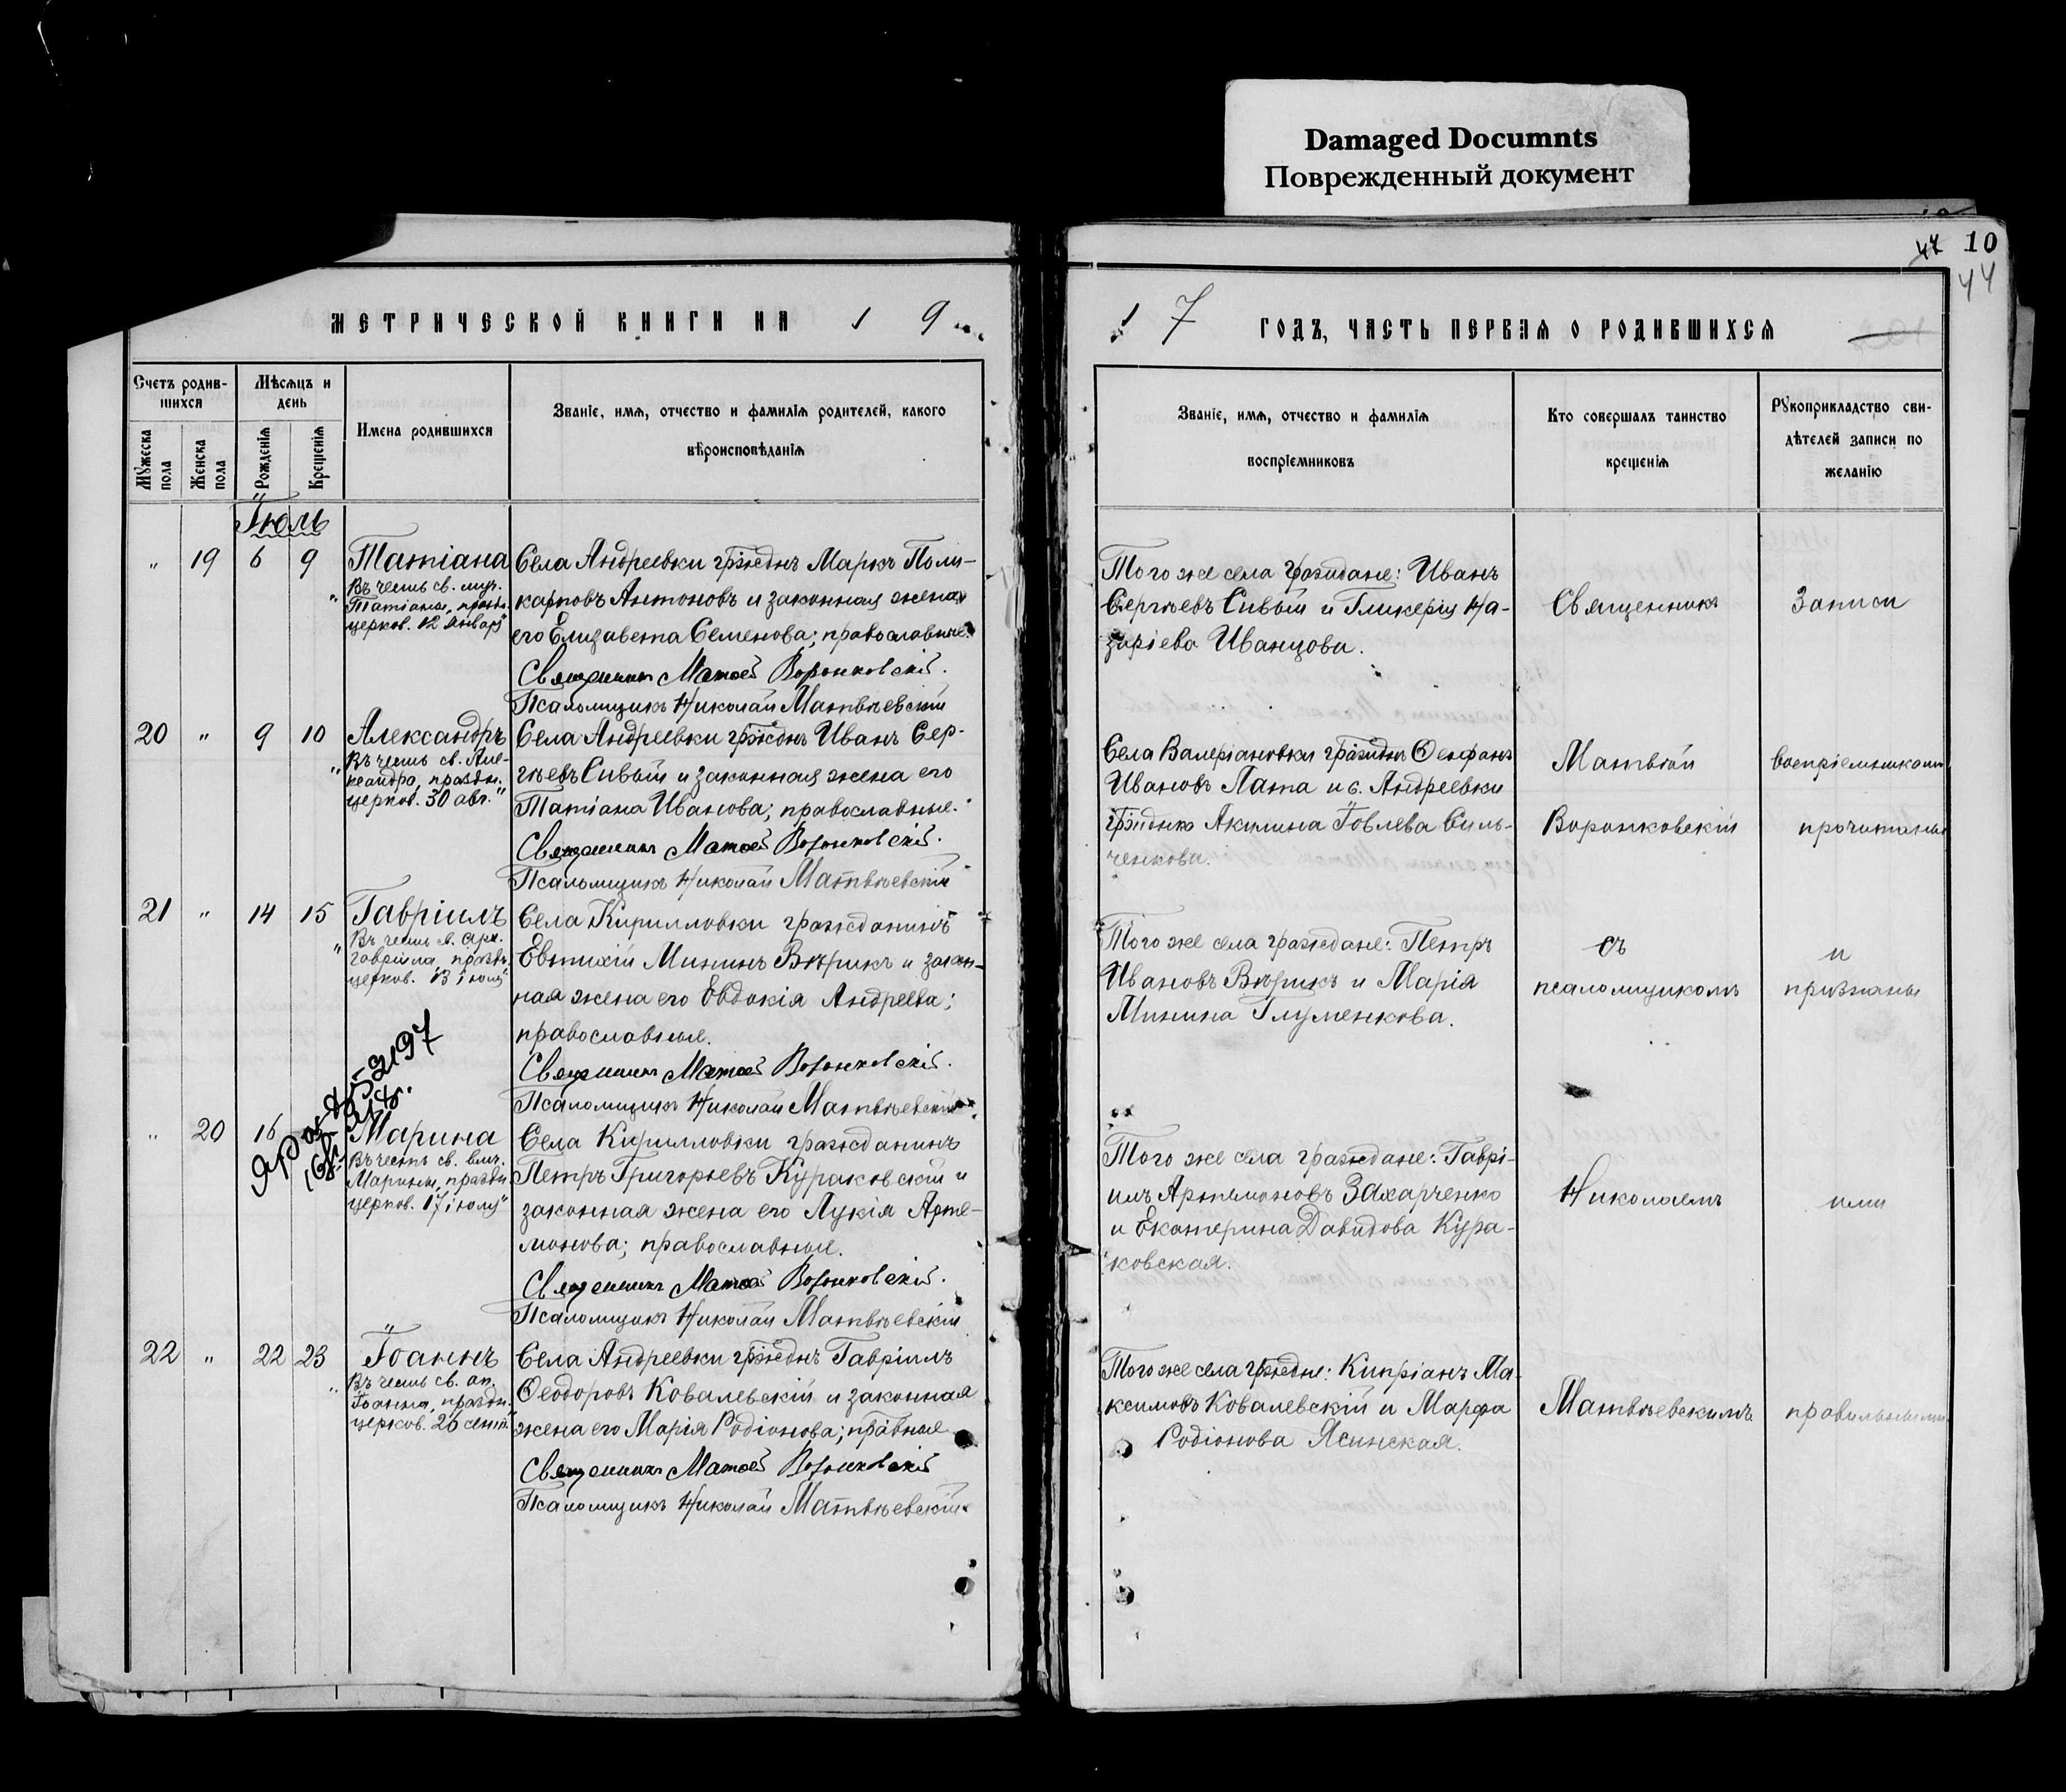 Damaged Documnts
Поврежденный документ
44 10
44
МЕТРИЧЕСКОЙ КНИГИ НА 1 9
1 7 ГОДЪ, ЧАСТЬ ПЕРВАЯ О РОДИВШИХСЯ
Счетъ родив-
шихся
Мужеска пола
Женска пола
Мѣсяцъ и
день
Рожденія
Крещенія
Имена родившихся
Званіе, имя, отчество и фамилія родителей, какого
вѣроисповѣданія
Званіе, имя, отчество и фамилія
воспріемниковъ
Кто совершалъ таинство
крещенія
Рукоприкладство сви-
дѣтелей записи по
желанію
Іюль
„ 19 6 9 Татіана
Въ честь св. муч.
Татіаны, праздн.
церков. 12 января"
Села Андреевки гржднъ Маркъ Поли-
карповъ Антоновъ и законная жена
его Елизавета Семенова; православные.
Священникъ Матѳей Воронковскій.
Псаломщикъ Николай Матвѣевскій
Того же села граждане: Иванъ
Сергѣевъ Сивый и Гликерія На-
заріева Иванцова.
Священникъ
Записи
20 „ 9 10 Александръ
Въ честь св. Але-
ксандра, праздн.
церков. 30 авг."
Села Андреевки гржднъ Иванъ Сер-
гѣевъ Сивый и законная жена его
Татіана Иванова; православные.
Священникъ Матѳей Воронковскій.
Псаломщикъ Николай Матвѣевскій
Села Валеріановки гржднъ Ѳеофанъ
Ивановъ Лата и с. Андреевки
гржднка Акилина Іовлева Силь-
ченкова.
Матвѣй
Воронковскій
воспріемниками
прочитаны
21 „ 14 15 Гавріилъ
Въ честь св. арх.
Гавріила, праздн.
церков. 13 іюля"
Села Кирилловки гражданинъ
Евтихій Мининъ Вѣрикъ и закон-
ная жена его Евдокія Андреева;
православные.
Священникъ Матѳей Воронковскій.
Псаломщикъ Николай Матвѣевскій
Того же села граждане: Петръ
Ивановъ Вѣрикъ и Марія
Минина Глуменкова.
съ
псаломщикомъ
и
признаны
„ 20 16 Марина
Въ честь св. влмч.
Марины, праздн.
церков. 17 іюля"
Села Кирилловки гражданинъ
Петръ Григорьевъ Кураковскій и
законная жена его Лукія Арте-
монова; православные.
Священникъ Матѳей Воронковскій.
Псаломщикъ Николай Матвѣевскій
Того же села граждане: Гаврі-
илъ Артемоновъ Захарченко
и Екатерина Давидова Кура-
ковская.
Николаемъ
ими
22 „ 22 23 Іоаннъ
Въ честь св. ап.
Іоанна, праздн.
церков. 26 сент."
Села Андреевки гржднъ Гавріилъ
Ѳеодоровъ Ковалевскій и законная
жена его Марія Родіонова; правные
Священникъ Матѳей Воронковскій
Псаломщикъ Николай Матвѣевскій
Того же села грждне: Кипріанъ Ма-
ксимовъ Ковалевскій и Марфа
Родіонова Ясинская.
Матвѣевскимъ
правильными